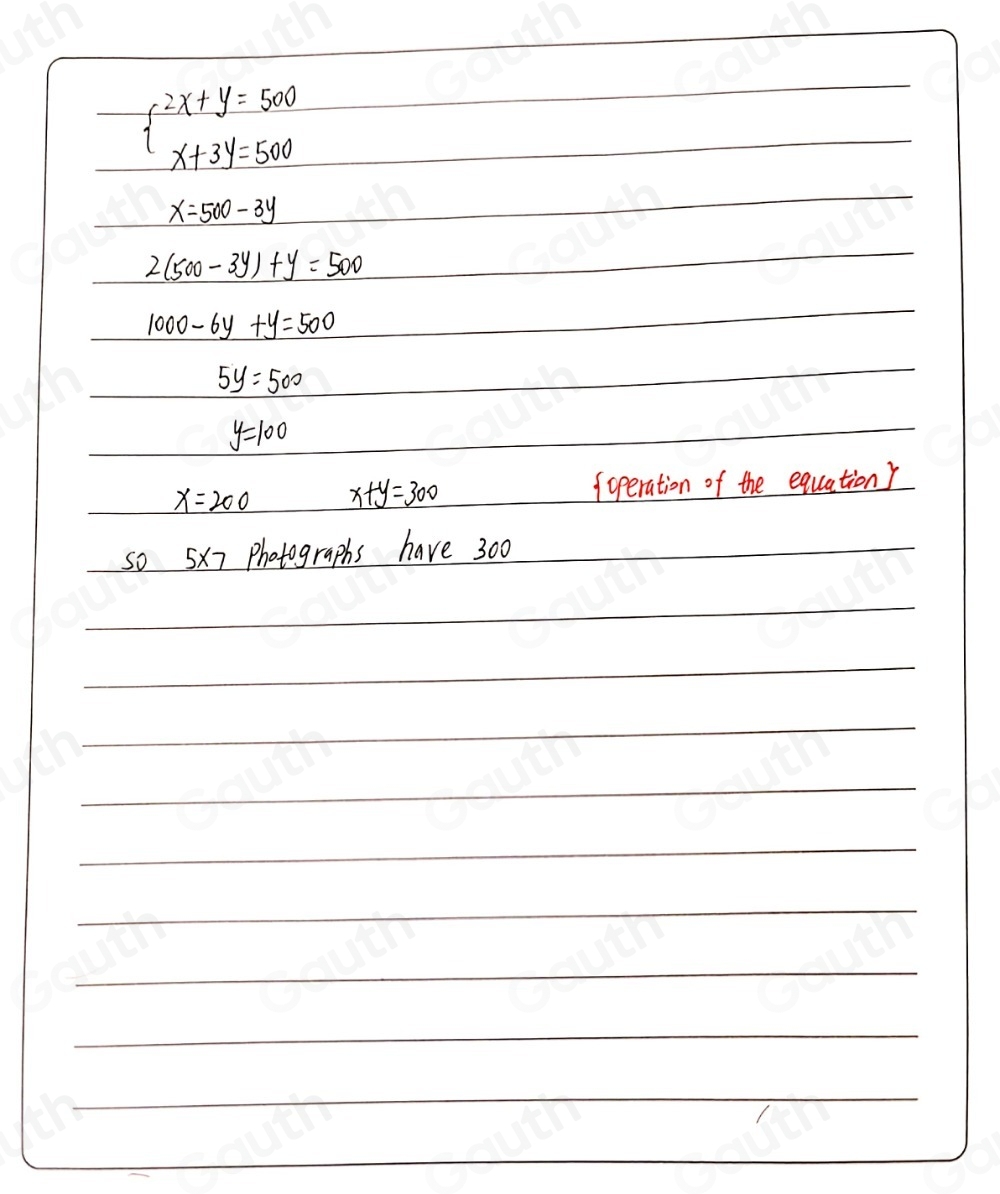 2x+y=500
x+3y=500
x=500-3y
2(500-3y)+y=500
1000-6y+y=500
5y=500
y=100
x=200 x+y=300 {operation of the equation}
so 5x7 photographs have 300